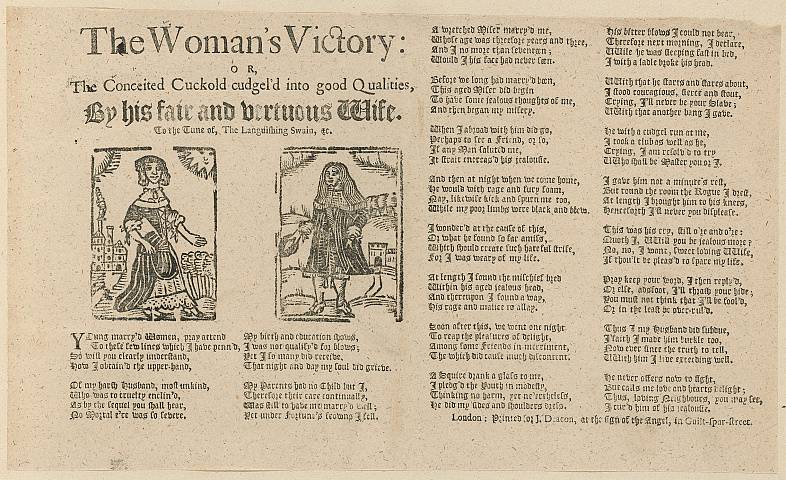 The Woman's Victory:
OR,
The Conceited Cuckold cudgel'd into good Qualities,
By his fair and vertuous Wife.
To the Tune of, The Languishing Swain, &c.
YOung marry'd Women, pray attend
To these few lines which I have penn'd,
So will you clearly understand,
How I obtain'd the upper-hand,
Of my harsh Husband, most unkind,
Who was to cruelty enclin'd,
As by the sequel you shall hear,
No Mortal e're was so severe.
My birth and education shows,
I was not qualify'd for blows;
Yet I so many did receive,
That night and day my soul did grieve.
My Parents had no Child but I,
Therefore their care continually,
Was still to have me marry'd well;
Yet under Fortune's frowns I fell.
A wretched Miser marry'd me,
Whose age was threescore years and three,
And I no more than seventeen;
Would I his face had never seen.
Before we long had marry'd been,
This aged Miser did begin
To have some jealous thoughts of me,
And then began my misery.
When I abroad with him did go,
Perhaps to see a Friend, or so,
If any Man saluted me,
It strait encreas'd his jealousie.
And then at night when we come home,
He would with rage and fury foam,
Nay, likewise kick and spurn me too,
While my poor limbs were black and blew.
I wonder'd at the cause of this,
Or what he found so far amiss,
Which should create such hateful strife,
For I was weary of my life.
At length I found the mischief bred
Within his aged jealous head,
And thereupon I found a way,
His rage and malice to allay.
Soon after this, we went one night
To reap the pleasures of delight,
Among some Friends in merriment,
The which did cause much discontent.
A Squire drank a glass to me,
I pledg'd the Youth in modesty,
Thinking no harm, yet ne'ertheless,
He did my sides and shoulders dress.
His bitter blows I could not bear,
Therefore next morning, I declare,
While he was sleeping fast in bed,
I with a ladle broke his head.
With that he stares and stares about,
I stood couragious, fierce and stout,
Crying, I'll never be your slave;
With that another bang I gave.
He with a cudgel run at me,
I took a club as well as he,
Crying, I am resolv'd to try
Who shall be Master you or I.
I gave him not a minute's rest,
But round the room the Rogue I drest,
At length I brought him to his knees,
Henceforth I'll never you displease.
This was his cry, still o're and o're:
Quoth I, Will you be jealous more?
No, no, I wont, sweet loving Wife,
If thou'lt be pleas'd to spare my life.
Pray keep your word, I then reply'd,
Or else, adsfoot, I'll thrash your hide;
You must not think that I'll be fool'd,
Or in the least be over-rul'd.
Thus I my Husband did subdue,
I'faith I made him buckle too,
Now ever since the truth to tell,
With him I live exceeding well.
He never offers now to fight,
But calls me love and hearts delight;
Thus, loving Neighbours, you may see,
I cur'd him of his jealousie.
London: Printed for J. Deacon, at the sign of the Angel, in Guilt-spur-street.